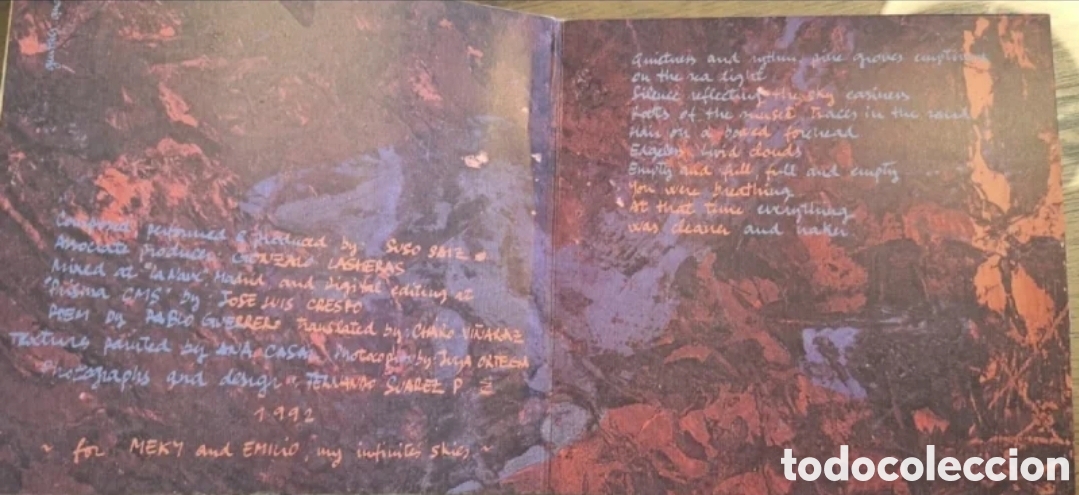 Composed performed & produced by: SUSO SAIZ
Associate producer: GONZALO LASHERAS
Mixed at "La Nave" Madrid and digital editing at
"Prisma CMS" by JOSE LUIS CRESPO
POEM by PABLO GUERRERO Translated by: CHARO VIÑARAZ
TEXTURES painted by ANA CASAL by: JULIA ORTEGA
Photographs and design FERNANDO SUAREZ P
1992
~ for MEKY and EMILIO, my infinites skies ~
Quietness and pine groves
on the sea light
Silence reflecting the sky easiness
of the sunset Traces in the
Hair on a forehead
livid clouds
Empty and full, full and empty ...
You were breathing
At that time everything
was cleaner and
todocoleccion